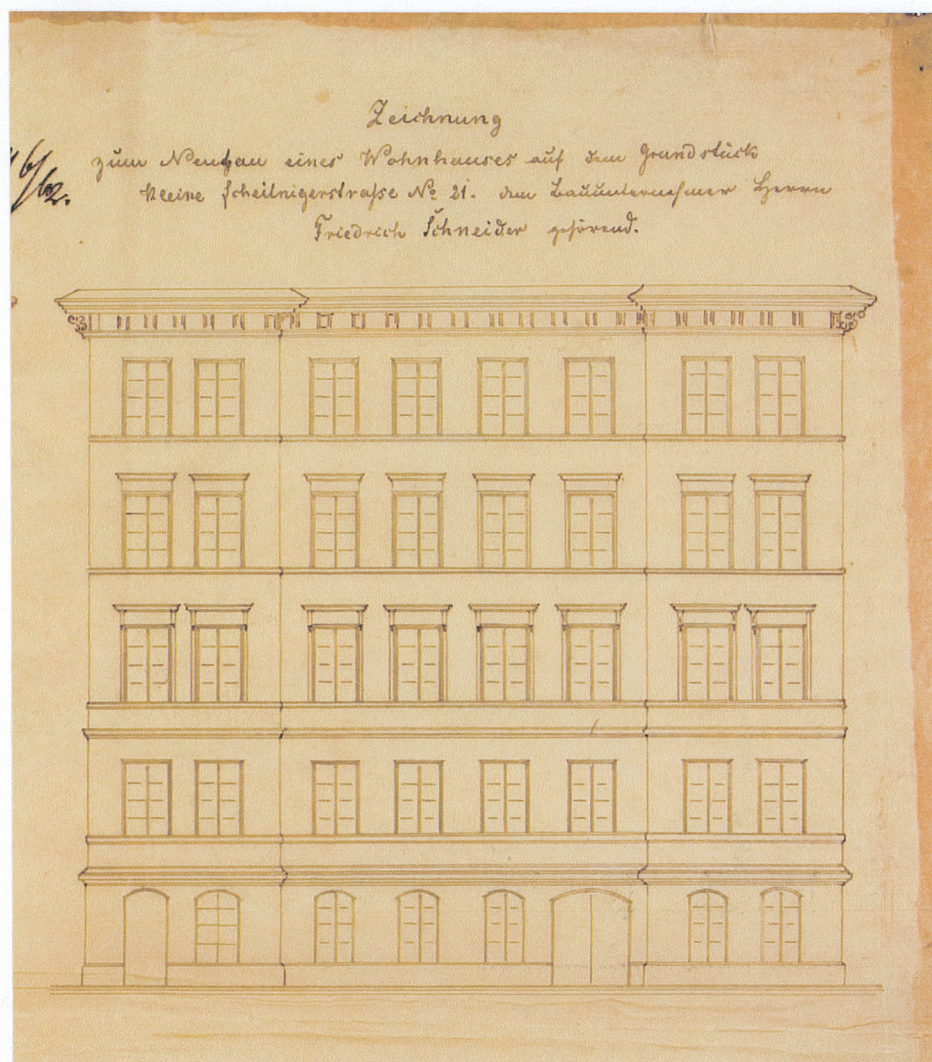 Zeichnung
zum Neubau eines Wohnhauses auf dem Grundstück
kleine Scheitnigerstraße No 21. dem Bauunternehmer Herrn
Friedrich Schneider gehörend.